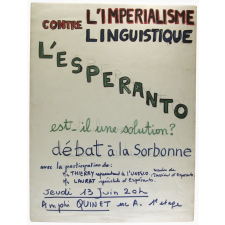 CONTRE L'IMPERIALISME
LINGUISTIQUE
L'ESPERANTO
est-il une solution?
débat à la Sorbonne
avec la participation de:
Mr THIERRY représentant de l'UNESCO,
Mr LAURAT spécialiste et Espéranto
Jeudi 13 Juin 20h
Amphi QUINET esc A. 1er étage